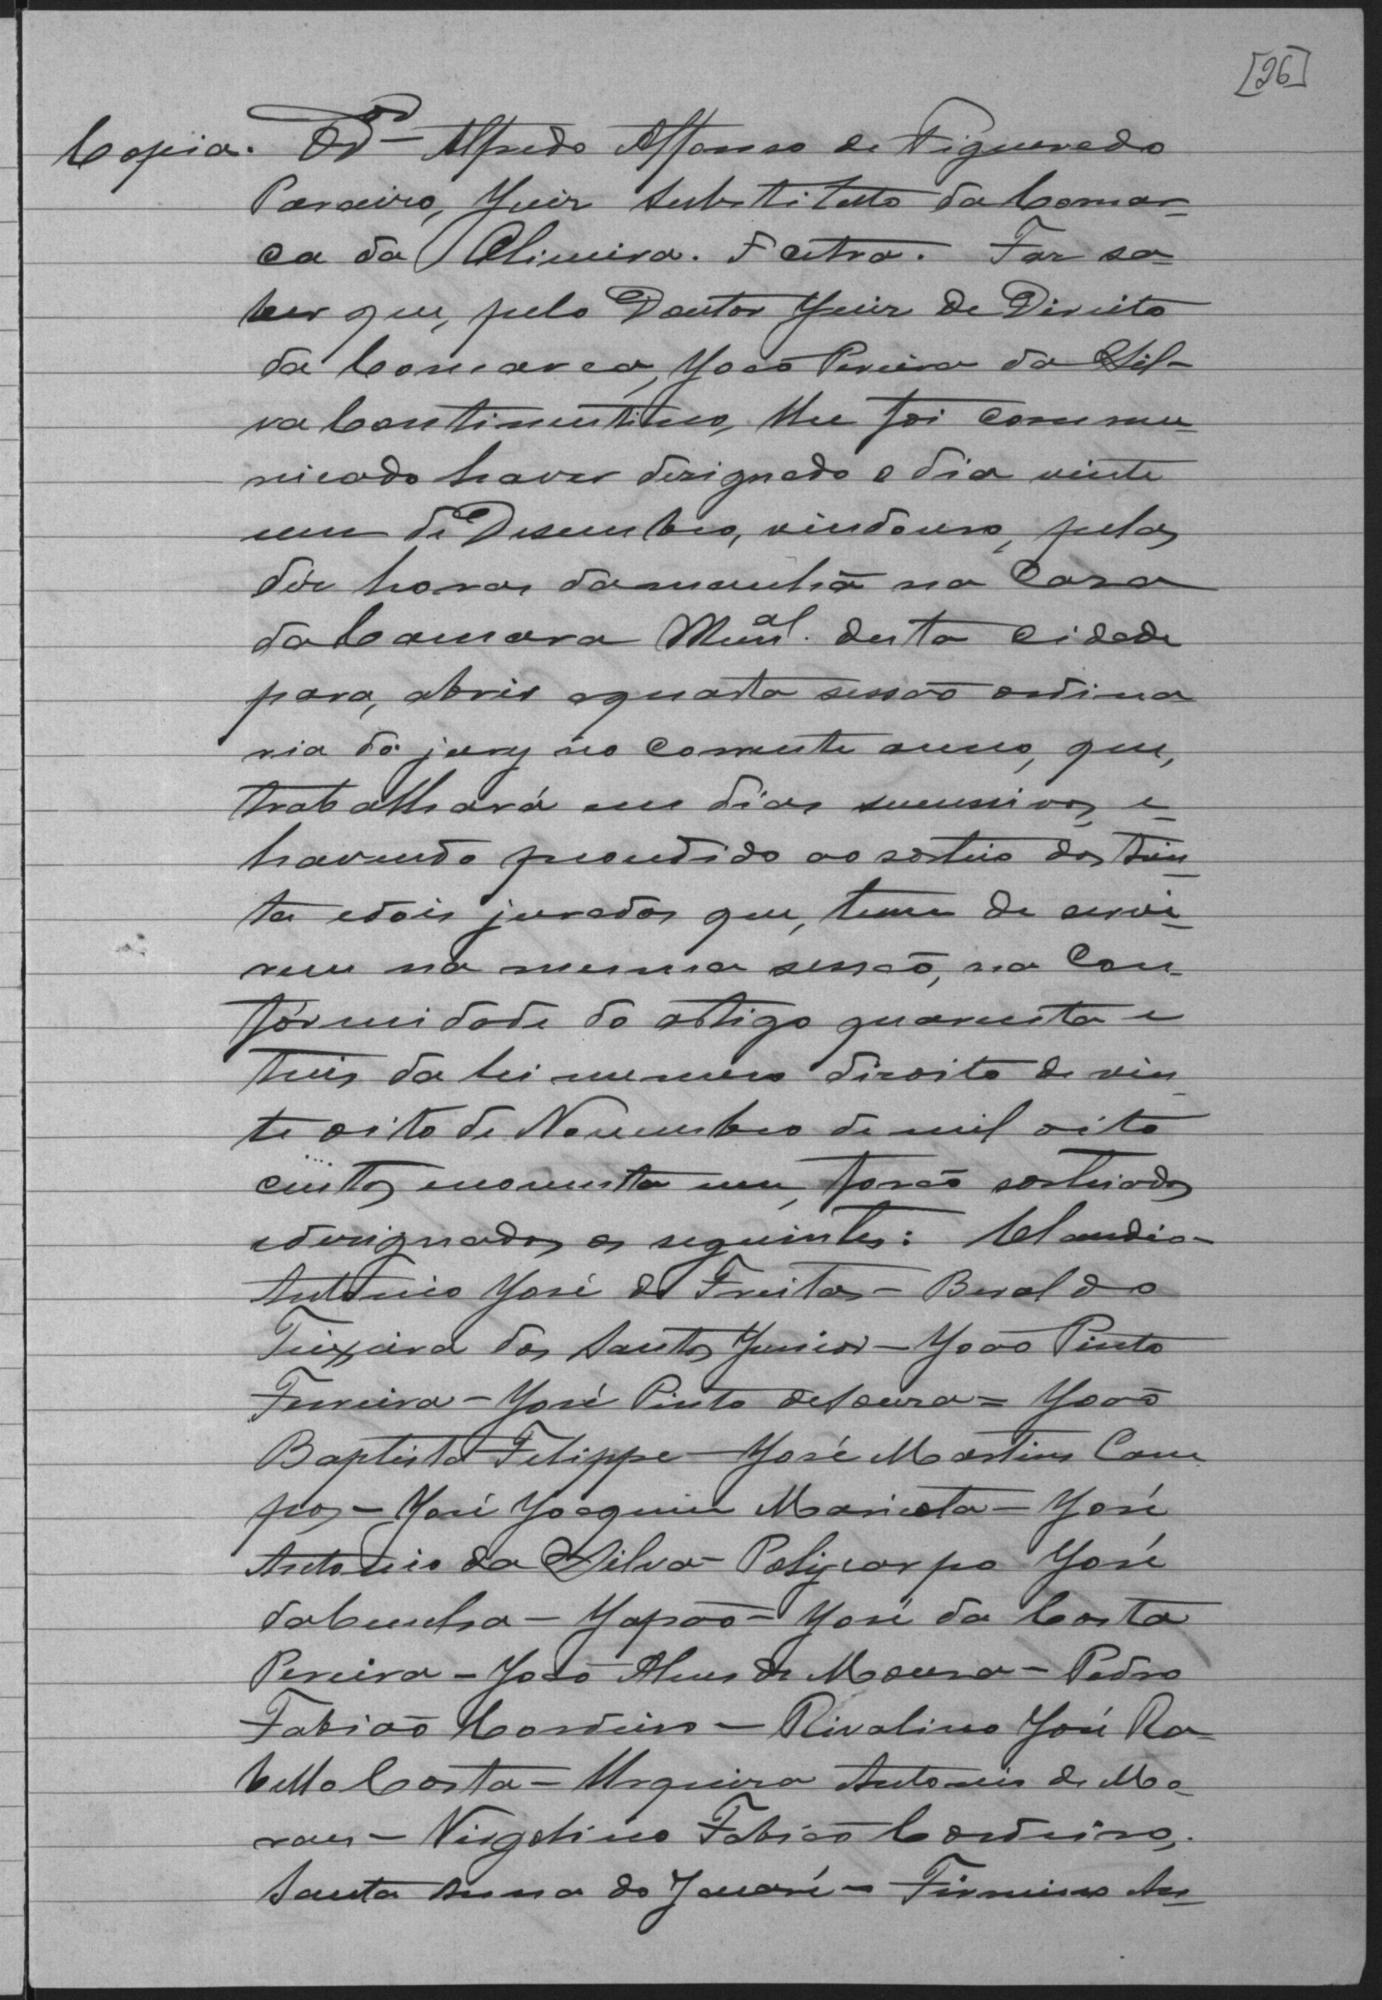 [26]
Copia. Dr Alfredo Affonso de Figueredo
Parreiro, Juiz Substituto da Comar-
ca da Oliveira. Fcetra. Faz sa-
ber que, pelo Doutor Juiz de Direito
da Comarca, João Pereira da Sil-
va Continentino, lhe foi commu-
nicado haver designado o dia vinte
um de Desembro, vindouro, pelas
déz horas damanhã na Casa
da Camara Mun.al desta Cidade
para, abrir aquarta sessão ordina
ria do jury no corrente anno, que,
trabalhará em dias sucessivos, e
havendo procedido ao sorteio dos trin-
ta edois jurados que, teem de servi-
rem na mesma sessão, na Con-
formidade do artigo quarenta e
treis da lei numero dizoito de vin-
te oito de Novembro de mil oito
centos enoventa um, forão sorteados
edesignados os seguintes: Claudio
Antonio José de Freitas - Beraldo
Teixeira dos Santos Junior - João Pinto
Ferreira - José Pinto deSouza = João
Baptista Felippe - José Martins Cam
pos - José Joaquim Maricota - José
Antonio da Silva - Polycarpo José
daCunha - Japão - José da Costa
Pereira - João Alves de Moura - Pedro
Fabião Cordeiro - Rivalino José Ra-
bello Costa - Antonio de Mo-
raes - Virgolino Fabião Cordeiro,
Santa Anna do Jacaré - Firmino An-